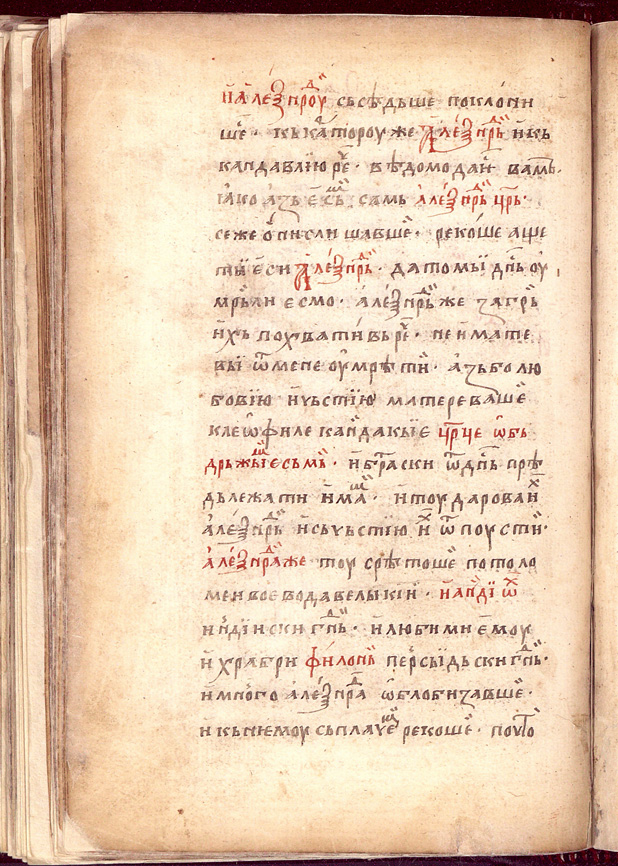 и҆ але́ѯⷣнроу съсѣдьше поклони
шеⷭ҇ · къ каⷩ҇тороу же але́ѯⷣнрь и҆ къ
кандавлїю рⷱ҇е · вѣдомо да и҆ вамь ·
ꙗ҆ко азь е҆смь самь але́ѯⷣнрь цр҃ь ·
се же ѡ҆ни слишавше · реко́ше аще
ты е҆си але́ѯⷣнрь · да то мы дн҃ь оу
мрьли есмо · але́ѯⷣнрь же загрь
и҆хь похвати́вь рⷱ҇е · не имате
вы ѿ мене оу҆мрѣти · а҆зь бо лю
бовїю и҆ чьстїю матере ваше
клеѡ҆филе кан҆дакїе цр҃це ѡ҆бь
дрьжїмь есьмь · и҆ братски ѿ дн҃ь прѣ
дьлежати и҆маⷨ · и҆ тоу дарова и҆ⷯ
але́ѯⷣнрь и҆ сь чьстїю и҆ⷯ ѿпоусти ·
але́ѯⷣнра же тоу срѣтоше потоло
меи воевода велыкїи · и҆ ан҆дїѡⷯ
ин҆дїиски гⷭ҇пⷣнь · и҆ любимы е҆моу
и҆ храбри филонь персїдьски гⷭ҇пⷣнь ·
и҆ много але́ѯⷣнра ѡ҆блобизавше ·
и҆ кь нѥмоу сь плачеⷨ рекоше · почто